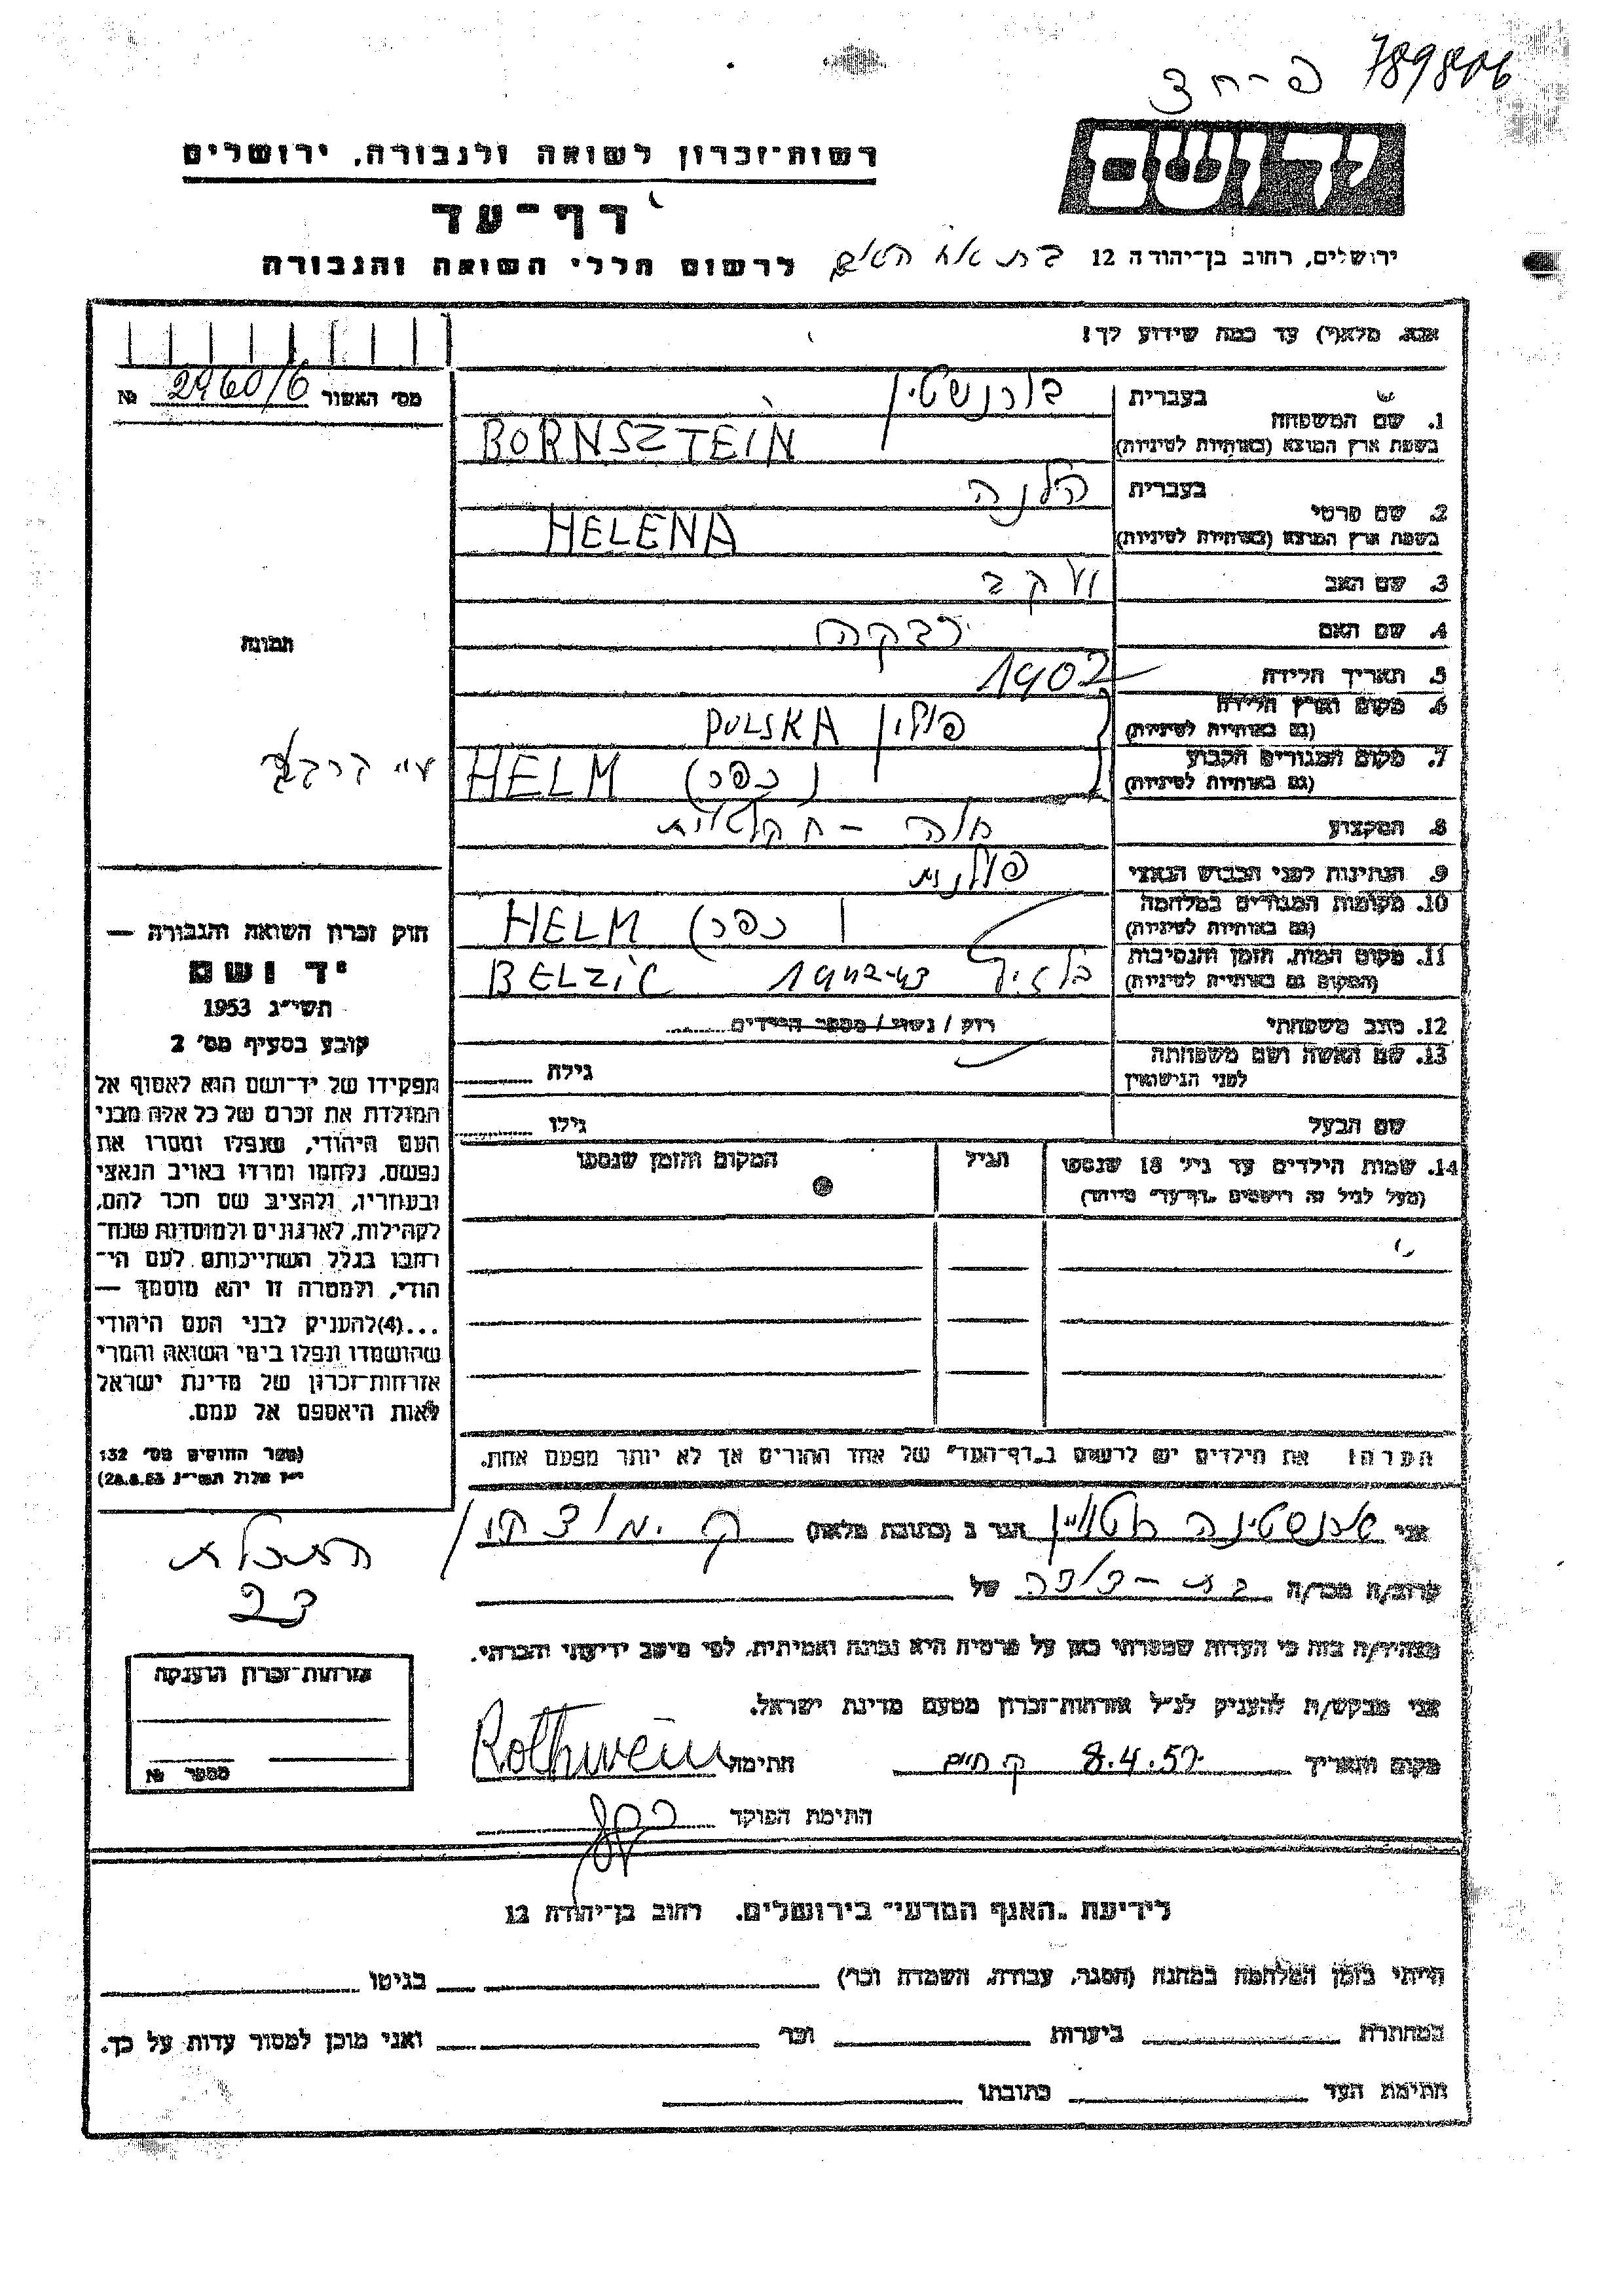 789806
יד ושם
רשות־זכרון לשואה ולגבורה, ירושלים
דף־עד
ירושלים, רחוב בן־יהודה 12
לרשום חללי השואה והגבורה
עד כמה שידוע לך!
מס' האשור 2960/6 №
בעברית בורנשטין
1. שם המשפחה
בשפת ארץ המוצא (באותיות לטיניות) BORNSZTEIN
בעברית הלנה
2. שם פרטי
בשפת ארץ המוצא (באותיות לטיניות) HELENA
3. שם האב יעקב
4. שם האם רבקה
תמונה
5. תאריך הלידה 1902
6. מקום וארץ הלידה
(גם באותיות לטיניות) פולין POLSKA
7. מקום המגורים הקבוע
(גם באותיות לטיניות) (כפר) HELM
8. המקצוע חקלאית
9. הנתינות לפני הכבוש הנאצי פולנית
10. מקומות המגורים במלחמה
(גם באותיות לטיניות) (כפר) HELM
11. מקום המות, הזמן והנסיבות
(המקום גם באותיות לטיניות) 1942-43 BELZIC
12. מצב משפחתי רווק / נשוי / מספר הילדים
13. שם האשה ושם משפחתה
לפני הנישואין גילה
שם הבעל גילו
14. שמות הילדים עד גיל 18 שנספו הגיל המקום והזמן שנספו
(מעל לגיל זה רושמים „דף־עד" מיוחד)
חוק זכרון השואה והגבורה —
יד ושם
תשי"ג 1953
קובע בסעיף מס' 2
תפקידו של יד־ושם הוא לאסוף אל
המולדת את זכרם של כל אלה מבני
העם היהודי, שנפלו ומסרו את
נפשם, נלחמו ומרדו באויב הנאצי
ובעוזריו, ולהציב שם וזכר להם,
לקהילות, לארגונים ולמוסדות שנח־
רבו בגלל השתייכותם לעם הי־
הודי, ולמטרה זו יהא מוסמך —
...(4)להעניק לבני העם היהודי
שהושמדו ונפלו בימי השואה והמרי
אזרחות־זכרון של מדינת ישראל
לאות היאספם אל עמם.
(ספר החוקים מס' 132
י"ז אלול תשי"ג 28.8.53)
הערה! את הילדים יש לרשום ב„דף־העד" של אחד ההורים אך לא יותר מפעם אחת.
אני הגר ב (כתובת מלאה) ק. מוצקין /
התכלת
23
קרוב/ה מכר/ה בת-דודה של
מצהיר/ה בזה כי העדות שמסרתי כאן על פרטיה היא נכונה ואמיתית, לפי מיטב ידיעתי והכרתי.
אני מבקש/ת להעניק לנ"ל אזרחות־זכרון מטעם מדינת ישראל.
מקום ותאריך 8.4.57 ק. חיים חתימה Rothwein
חתימת הפוקד
אזרחות־זכרון הוענקה
מספר №
לידיעת „האגף המדעי" בירושלים, רחוב בן־יהודה 12
הייתי בזמן המלחמה במחנה (הסגר, עבודה, השמדה וכו') בגיטו
במחתרת ביערות וכו' ואני מוכן למסור עדות על כך.
חתימת העד כתובתו